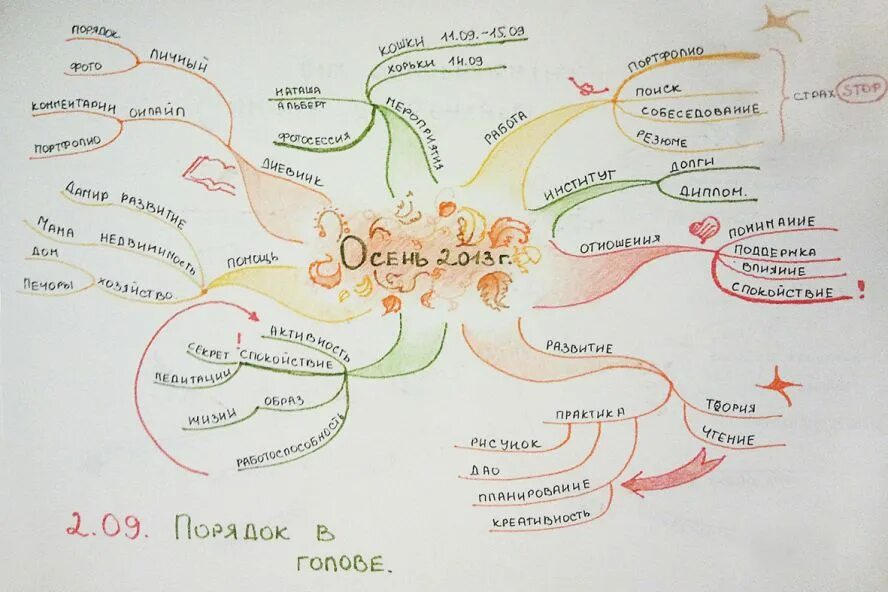 ОСЕНЬ 2013 г.
МЕРОПРИЯТИЯ
КОШКИ 11.09.-15.09
ХОРЬКИ 14.09
НАТАША
АЛЬБЕРТ
ФОТОСЕССИЯ
РАБОТА
ПОРТФОЛИО
ПОИСК
СОБЕСЕДОВАНИЕ
РЕЗЮМЕ
СТРАХ STOP
ИНСТИТУТ
ДОЛГИ
ДИПЛОМ.
ОТНОШЕНИЯ
ПОНИМАНИЕ
ПОДДЕРЖКА
ВЛИЯНИЕ
СПОКОЙСТВИЕ !
РАЗВИТИЕ
ТЕОРИЯ
ЧТЕНИЕ
ПРАКТИКА
РИСУНОК
ДАО
ПЛАНИРОВАНИЕ
КРЕАТИВНОСТЬ
АКТИВНОСТЬ
!
СЕКРЕТ СПОКОЙСТВИЕ
МЕДИТАЦИИ
ОБРАЗ
ЖИЗНИ
РАБОТОСПОСОБНОСТЬ
ПОМОЩЬ
ДАМИР РАЗВИТИЕ
МАМА НЕДВИЖИМОСТЬ
ДОМ
ПЕЧОРЫ ХОЗЯЙСТВО
ДНЕВНИК
ЛИЧНЫЙ
ПОРЯДОК
ФОТО
ОНЛАЙН
КОММЕНТАРИИ
ПОРТФОЛИО
2.09. ПОРЯДОК В
ГОЛОВЕ.